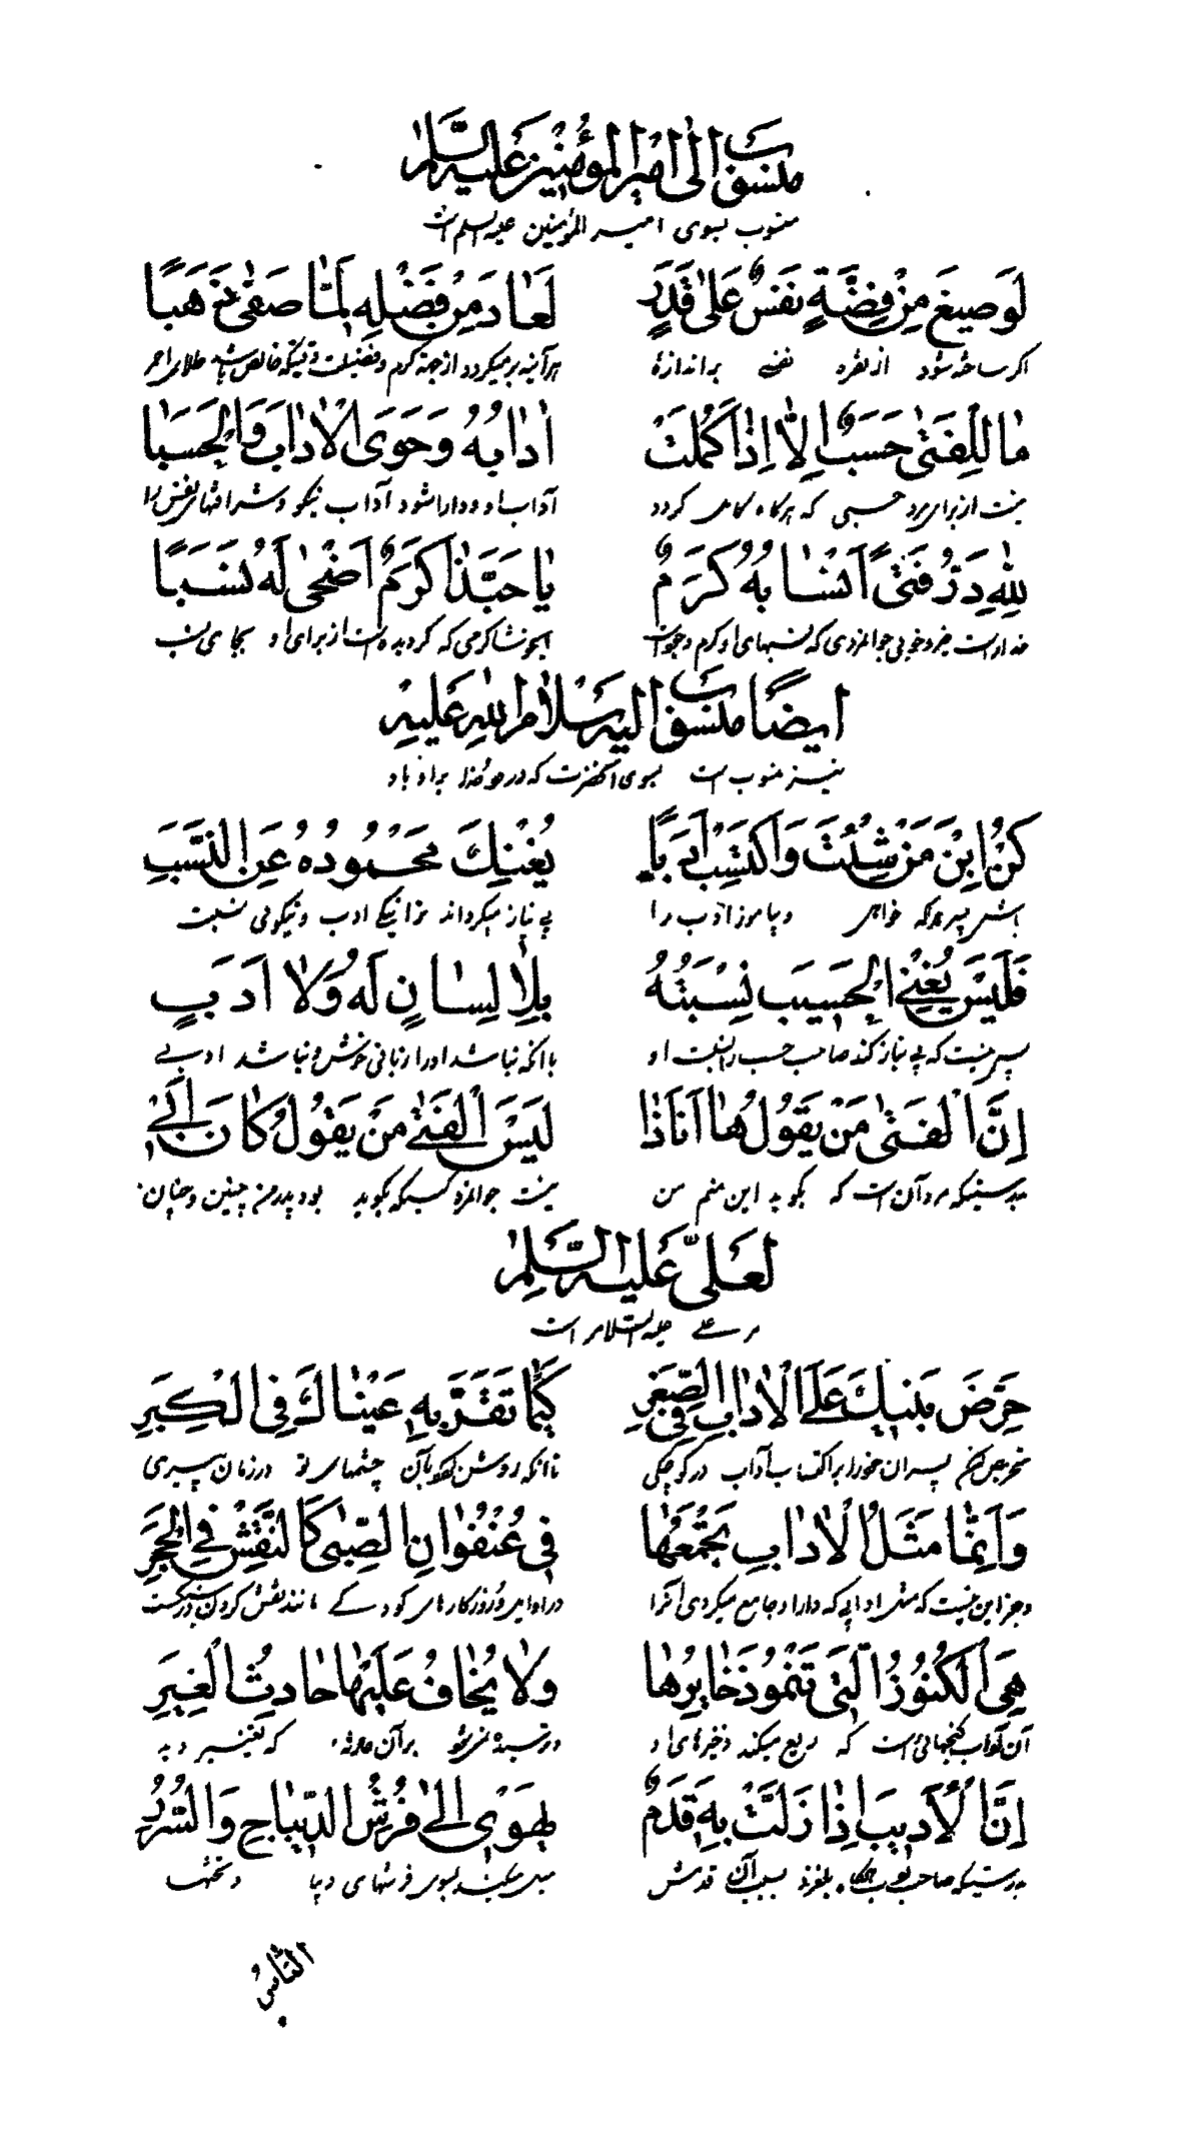 منسوب الى امیر المؤمنین علیه السلم
منسوب بسوی امیر المؤمنین علیه السلم است
لَوصیغَ مِنْ فِضَّةٍ نَفسٌ عَلىٰ قَدَرٍ لَعٰادَ مِنْ فَضْلِهِ لَمّٰا صَفىٰ ذَهَبًا
اکر ساخته شود از نقره نفسی بر اندازۀ هرآینه برمیکردد از جهة کرم و فضیلت وقتیکه خالص باشد طلای احمر
مٰا لِلفَتىٰ حَسَبٌ اِلّٰا اِذٰا كَمُلَتْ اٰدٰابُهُ وَحَوَى الْاٰدٰابَ وَالْحَسَبٰا
نیست از برای مرد حسبی که هرکاه کامل کردد آداب او و دارا شود آداب نیکو و شرافتهای نفس را
لِلّٰهِ دَرُّ فَتىً اَنْسٰابُهُ كَرَمٌ یٰا حَبَّذٰا كَرَمٌ اَضْحىٰ لَهُ نَسَبًا
خداراست خیر و خوبی جوانمردی که نسبهای او کرم و جود است ایخوشا کرمی که کردیده است از برای او بجای نسب
ایضًا منسوب الیه سَلٰام اللهِ عَلَیْهِ
نیز منسوب است بسوی آنحضرت که درود خدا بر او باد
كُنْ اِبْنَ مَنْ شِئْتَ وَاكْتَسِبْ اَدَبًا یُغْنیكَ مَحْمُودُهُ عَنِ النَّسَبِ
باش پسر هرکه خواهی و بیاموز ادب را بی نیاز میکرداند ترا نیکی ادب و نیکوئی نسبت
فَلَیْسَ یُغْنِی الْحَسیبَ نِسْبَتُهُ بِلٰا لِسٰانٍ لَهُ وَلٰا اَدَبٍ
پس نیست که بی نیاز کند صاحب حسب را نسبت او با آنکه نباشد او را زبانی خوش و نباشد ادبی
اِنَّ الْفَتىٰ مَنْ یَقُولُ هٰا اَنَا ذٰا لَیْسَ الْفَتىٰ مَنْ یَقُولُ كٰانَ اَبی
بدرستیکه مرد آن است که بکوید این منم من نیست جوانمرد کسیکه بکوید بود پدر من چنین و چنان
لعَلیّ عَلَیه السَّلٰم
مر علی علیه السلام راست
حَرِّضْ بَنیكَ عَلَى الْاٰدٰابِ فِى الصِّغَرِ كَیْمٰا تَقَرَّ بِهِ عَیْنٰاكَ فِى الْكِبَرِ
تحریص کن پسران خود را بر اکتساب آداب در کوچکی تا آنکه روشن شود بآن چشمهای تو در زمان پیری
وَاِنَّمٰا مَثَلُ الْاٰدٰابِ تَجْمَعُهٰا فی عُنْفُوٰانِ الصِّبىٰ كَالنَّقْشِ فِى الْحَجَرِ
و جز این نیست که مثل ادابی که دارا و جامع میکردی آنرا در اوایل روزکارهای کودکی مانند نقش کردن در سنکست
هِیَ الْكُنُوزُ الَّتی تَنْمُو ذَخٰایِرُهٰا وَلٰا یُخٰافُ عَلَیْهٰا حٰادِثُ الْغِیَرِ
آن آداب کنجهائی است که ریع میکند ذخیرهای او و ترسیده نمی شود بر آن حادثه که تغییر دهد
اِنَّ الْاَدیبَ اِذٰا زَلَّتْ بِهِ قَدَمٌ یَهْوی اِلىٰ فُرُشِ الدّیبٰاجِ وَالسُّرُرِ
بدرستیکه صاحب ادب هرکاه بلغزد بسبب آن قدمش میل میکند بسوی فرشهای دیبا و تختها
النّاسُ